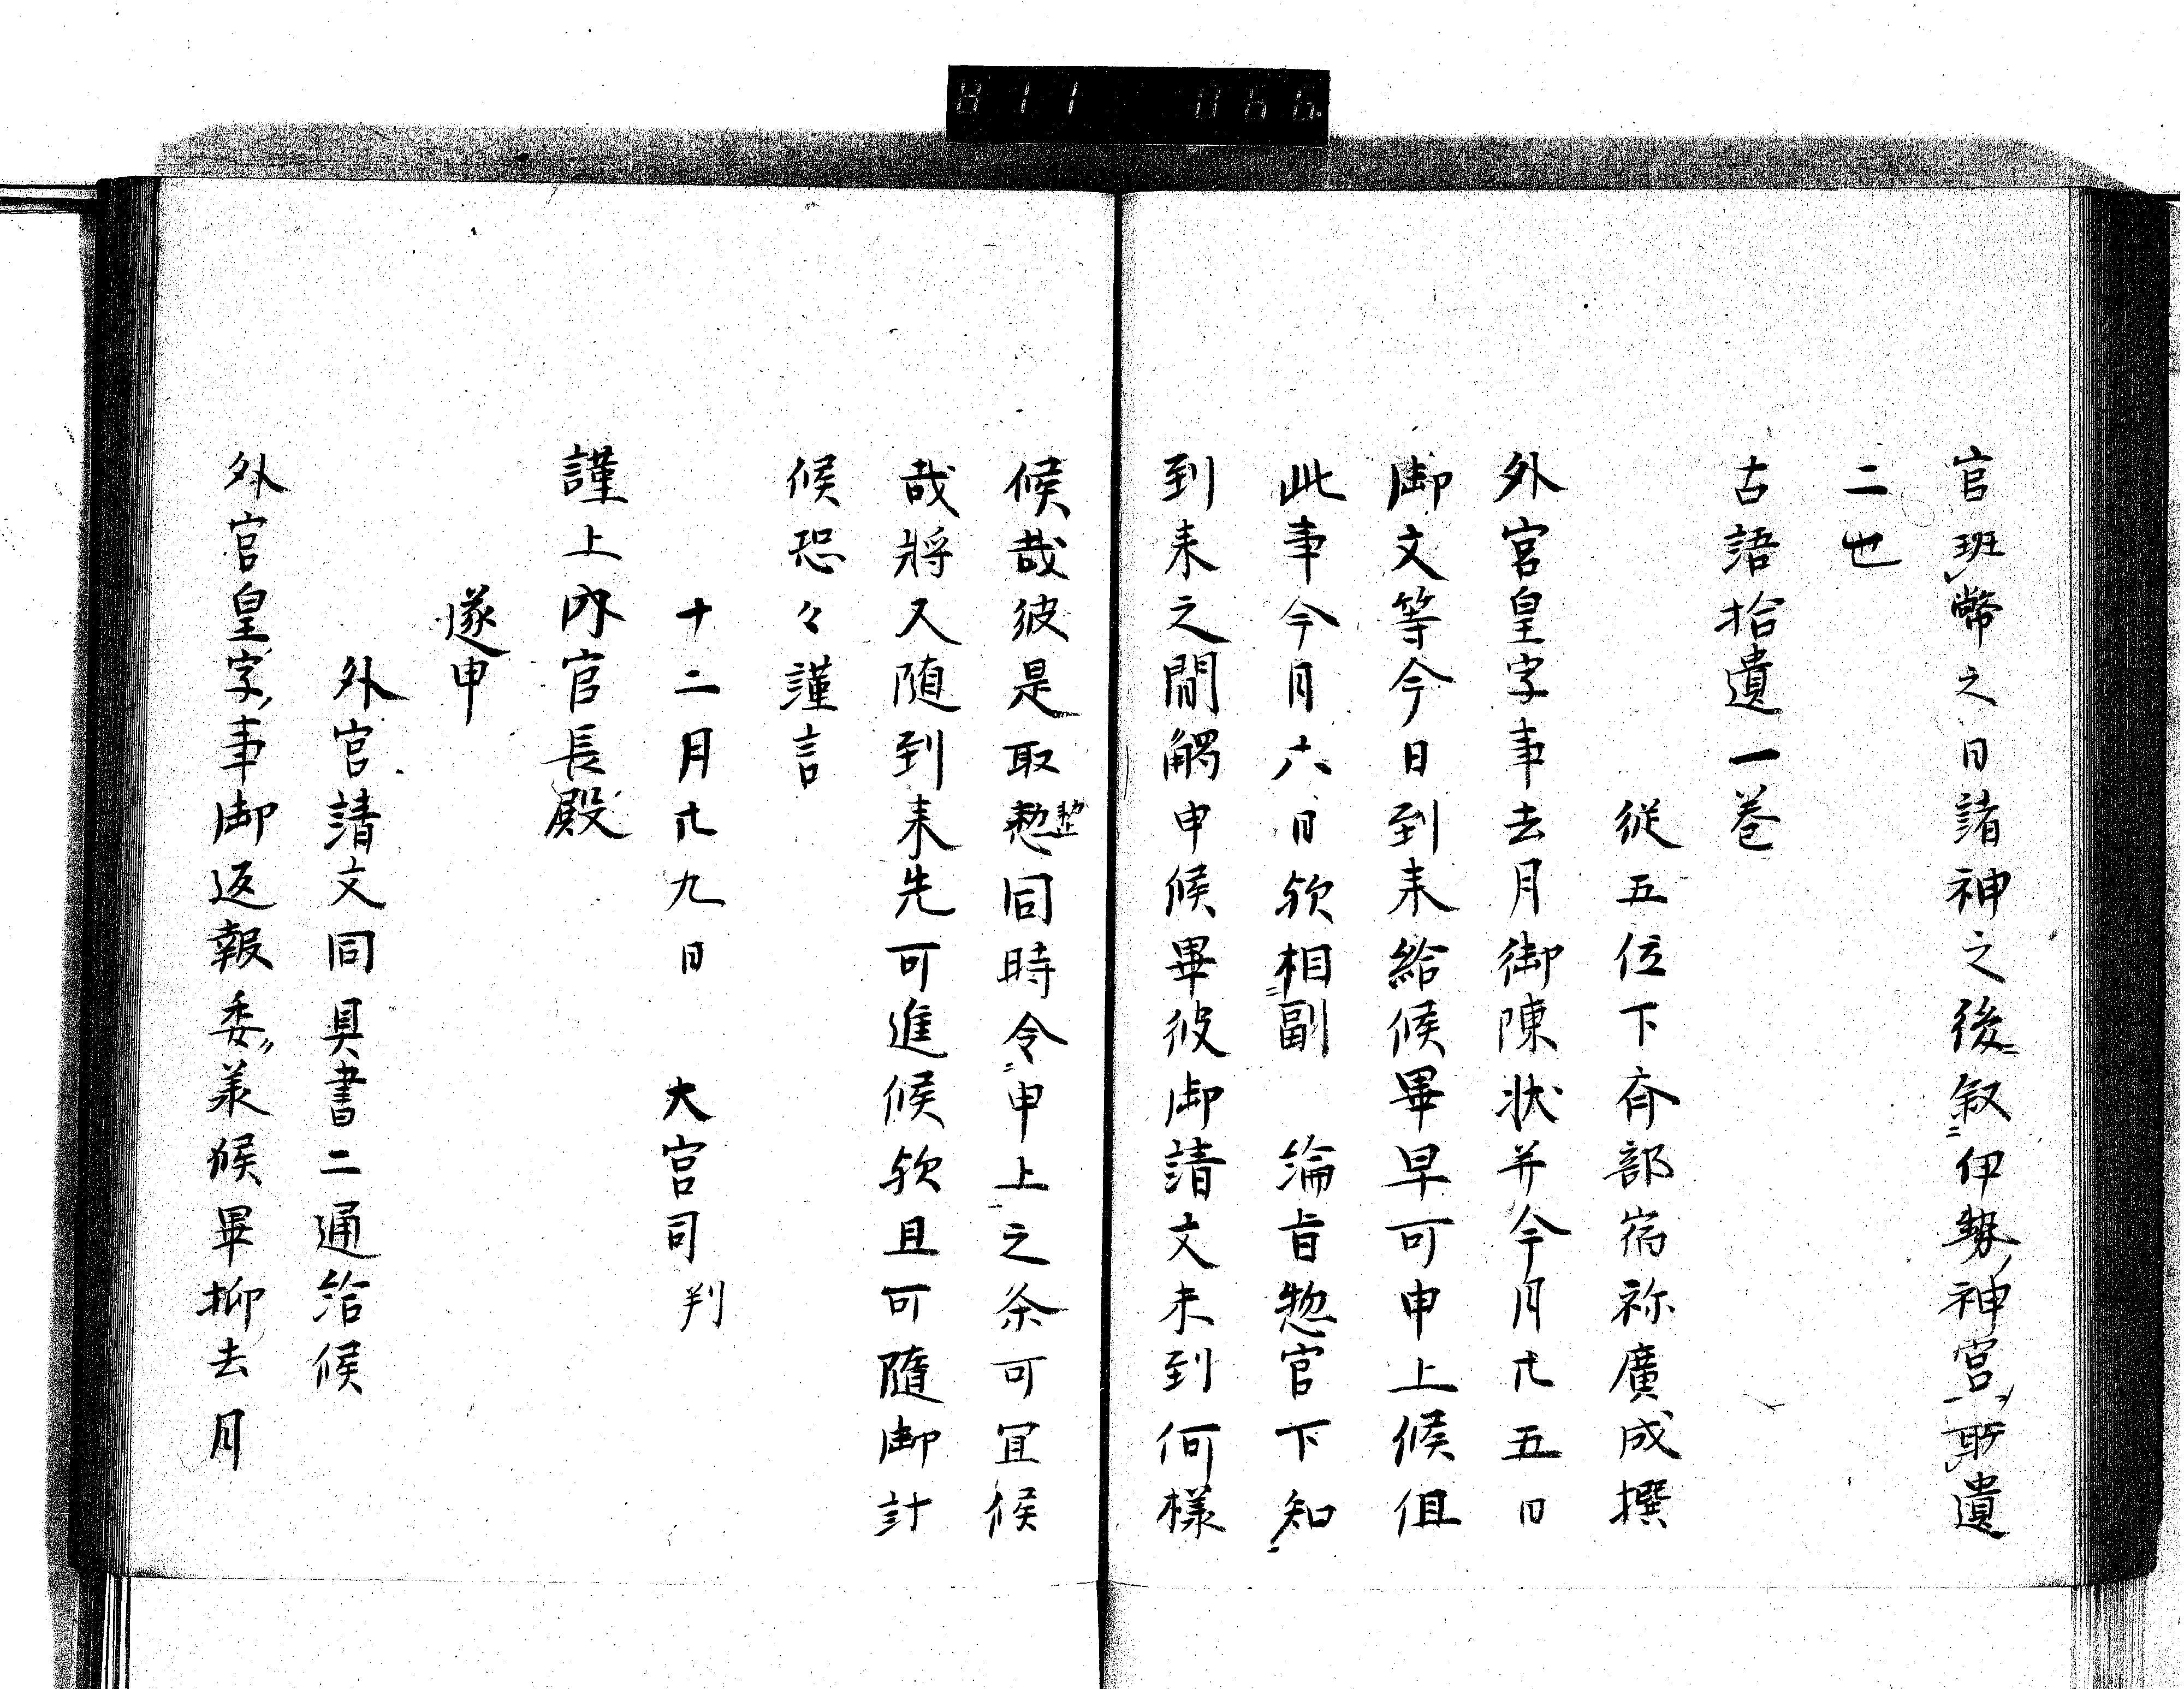 官班幣之日諸神之後叙伊勢神宮所遺
二也
古語拾遺一巻
従五位下斉部宿祢廣成撰
外宮皇字事去月御陳状并今月廿五日
御文等今日到来給候畢早可申上候但
此事今月六日欤相副　綸旨惣官下知
到来之間觸申候畢彼御請文未到何様
候哉彼是取整同時令申上之条可冝候
哉将又随到来先可進候欤且可随御計
候恐々謹言
十二月廿九日　大宮司判
謹上内宮長殿
逐申
外宮請文同具書二通給候
外宮皇字事御返報委承候畢抑去月